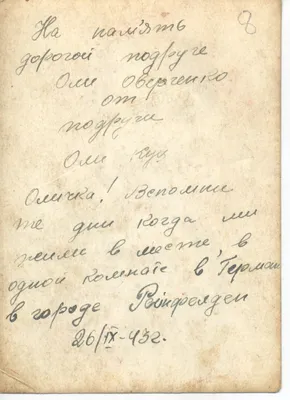 8
На память
дорогой подруге
Оли Оверченко
от
подруги
Оли Кущ
Оличка! Вспомни
те дни когда ми
жили в месте, в
одной комнате в Герман
в городе Райнфелден
26/IX-43г.